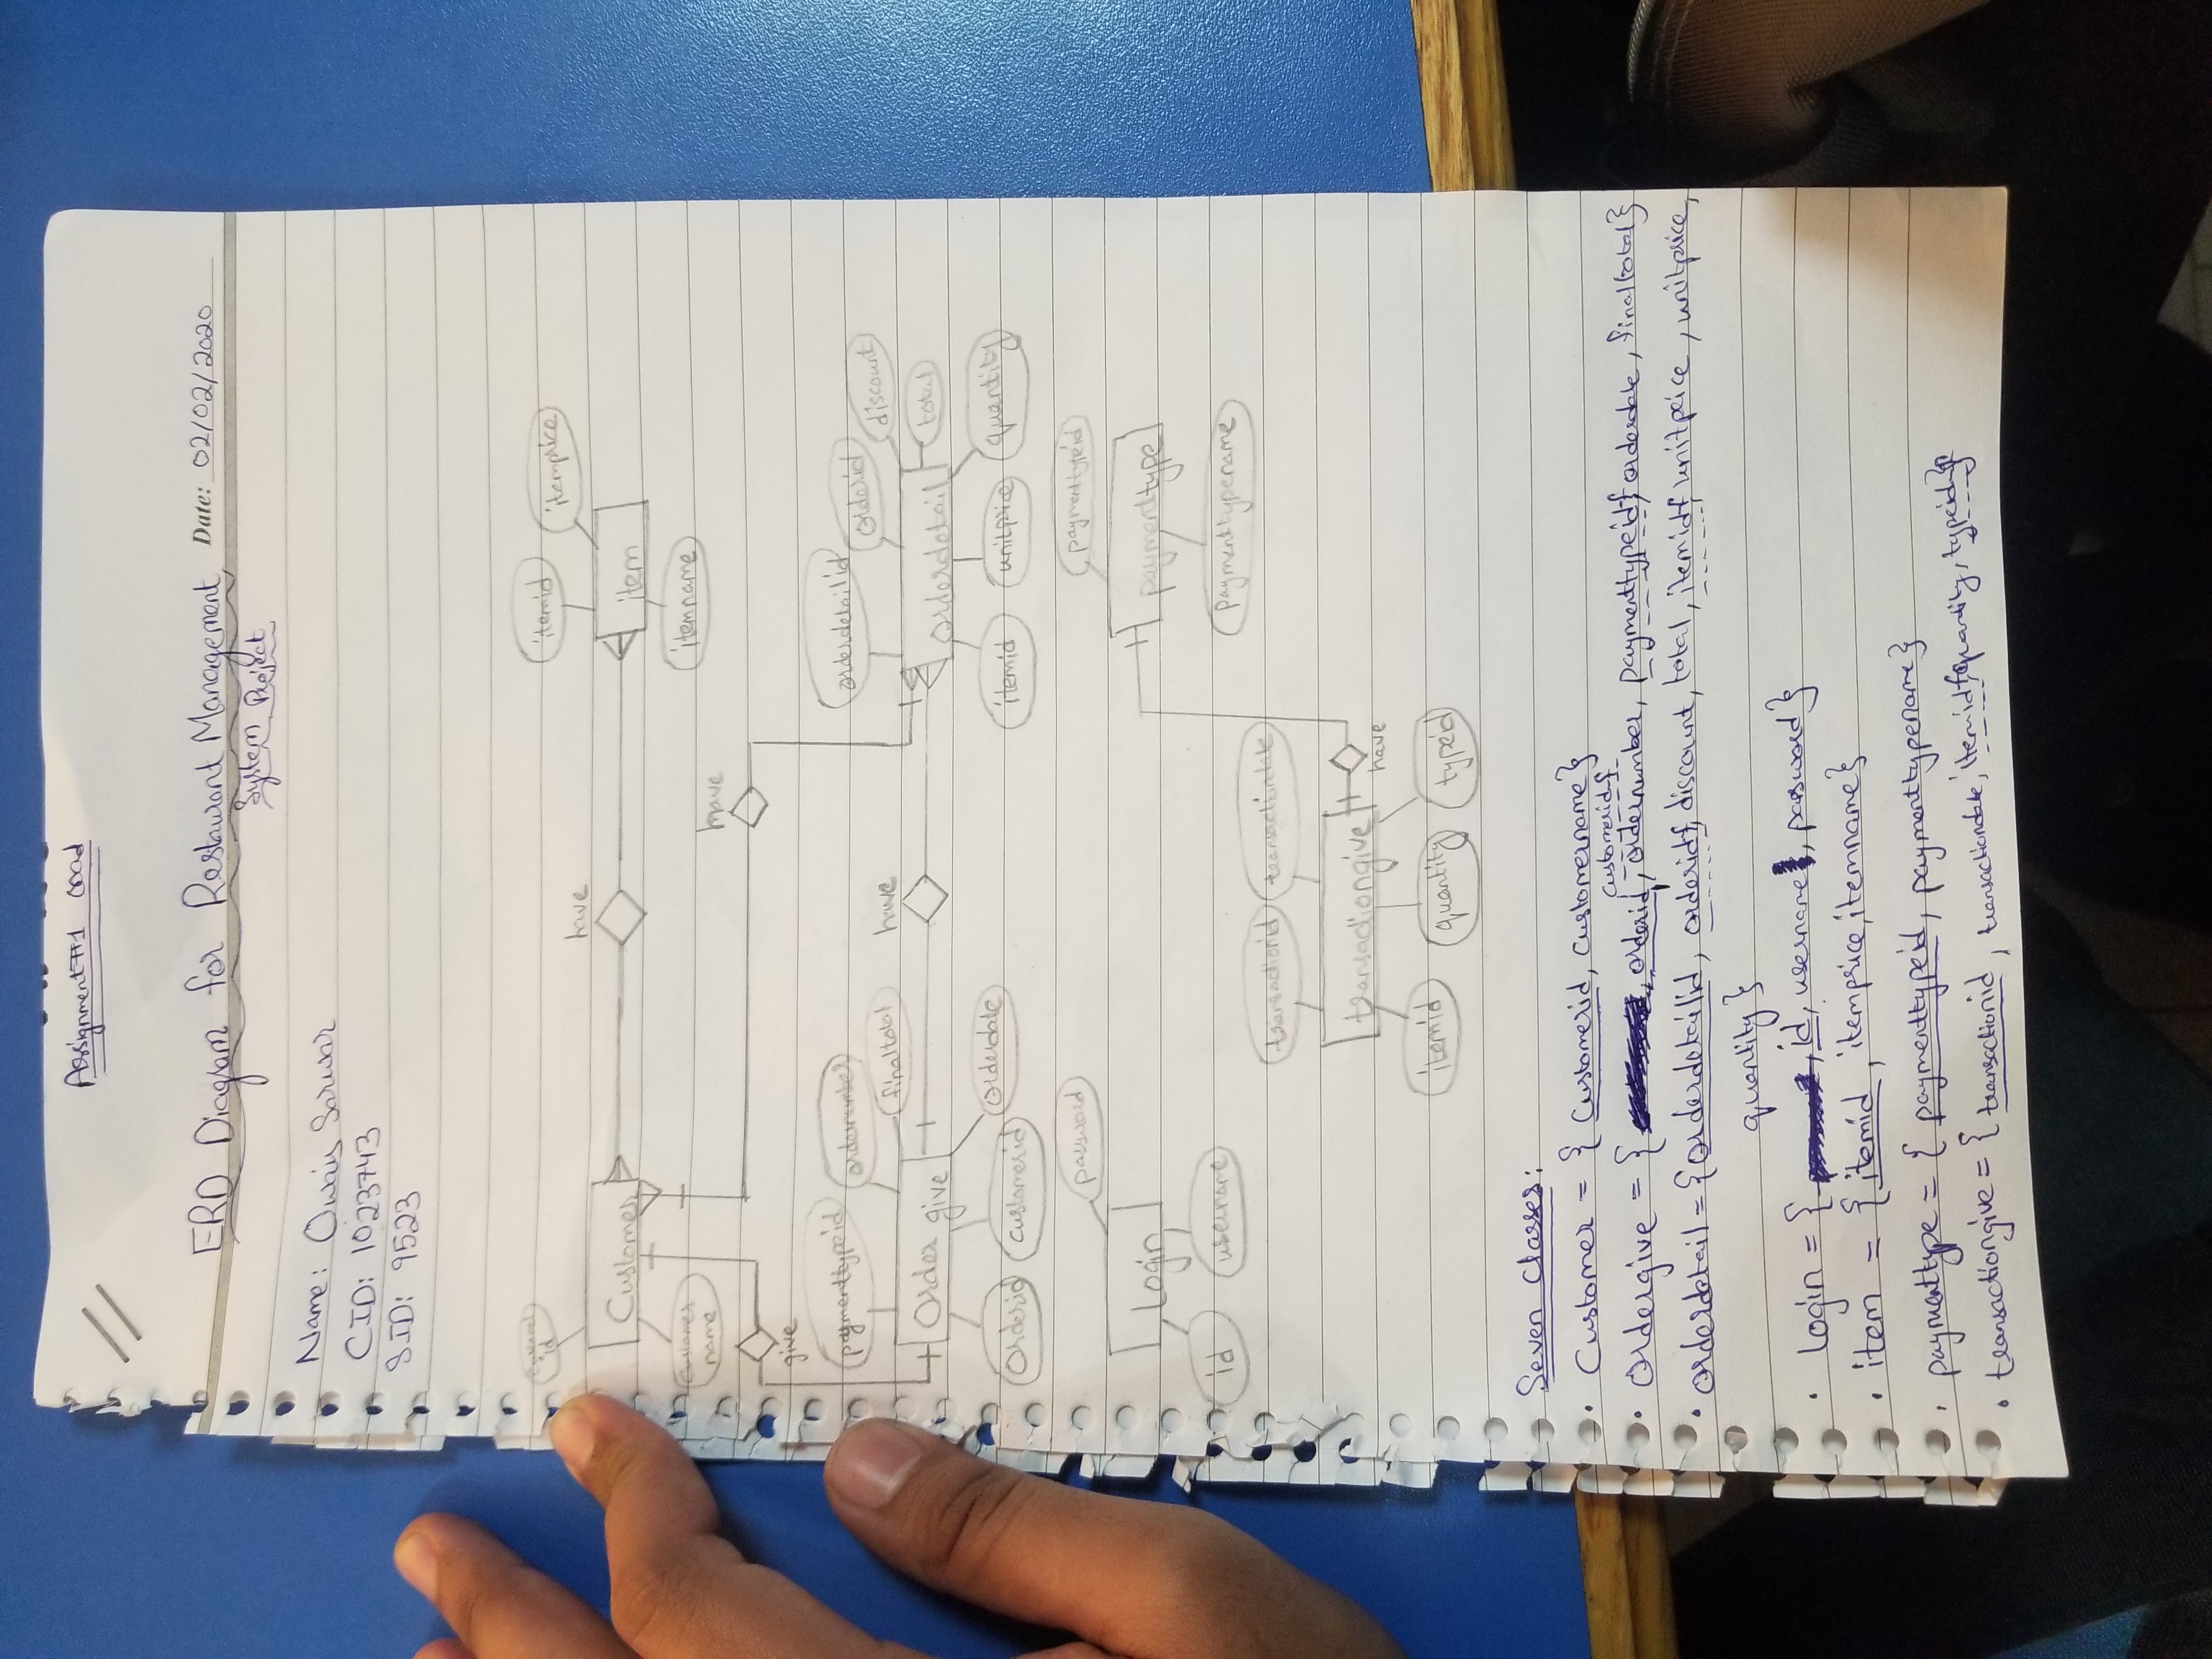 Assignment#1 ooad
ERD Diagram for Restaurant Management Date: 02/02/2020
System Project
Name: Owais Sarwar
CID: 1023743
SID: 9523
id
itemid
itemprice
have
Customer
item
customer
name
itemname
have
give
paymenttypeid
ordernumber
finaltotal
have
orderdetailid
orderid
discount
total
Order give
orderdetail
Orderid
customerid
orderdate
itemid
unitprice
quantity
password
paymenttypeid
Login
paymenttype
id
username
paymenttypename
transactionid
transactiondate
transactiongive
have
itemid
quantity
typeid
Seven Classes:
• Customer = { Customerid, customername}
customeridf
• Ordergive = { , orderid, ordernumber, paymenttypeidf, orderdate, finaltotal}
• orderdetail = {orderdetailid, orderidf, discount, total, itemidf, unitprice, unitprice,
quantity}
• login = { , id, username, password}
• item = {itemid, itemprice, itemname}
• paymenttype = { paymenttypeid, paymenttypename}
• transactiongive = { transactionid, transactiondate, itemidf, quantity, typeidf}